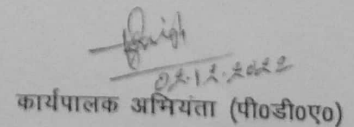 02.12.2022
कार्यपालक अभियंता (पी0डी0ए0)